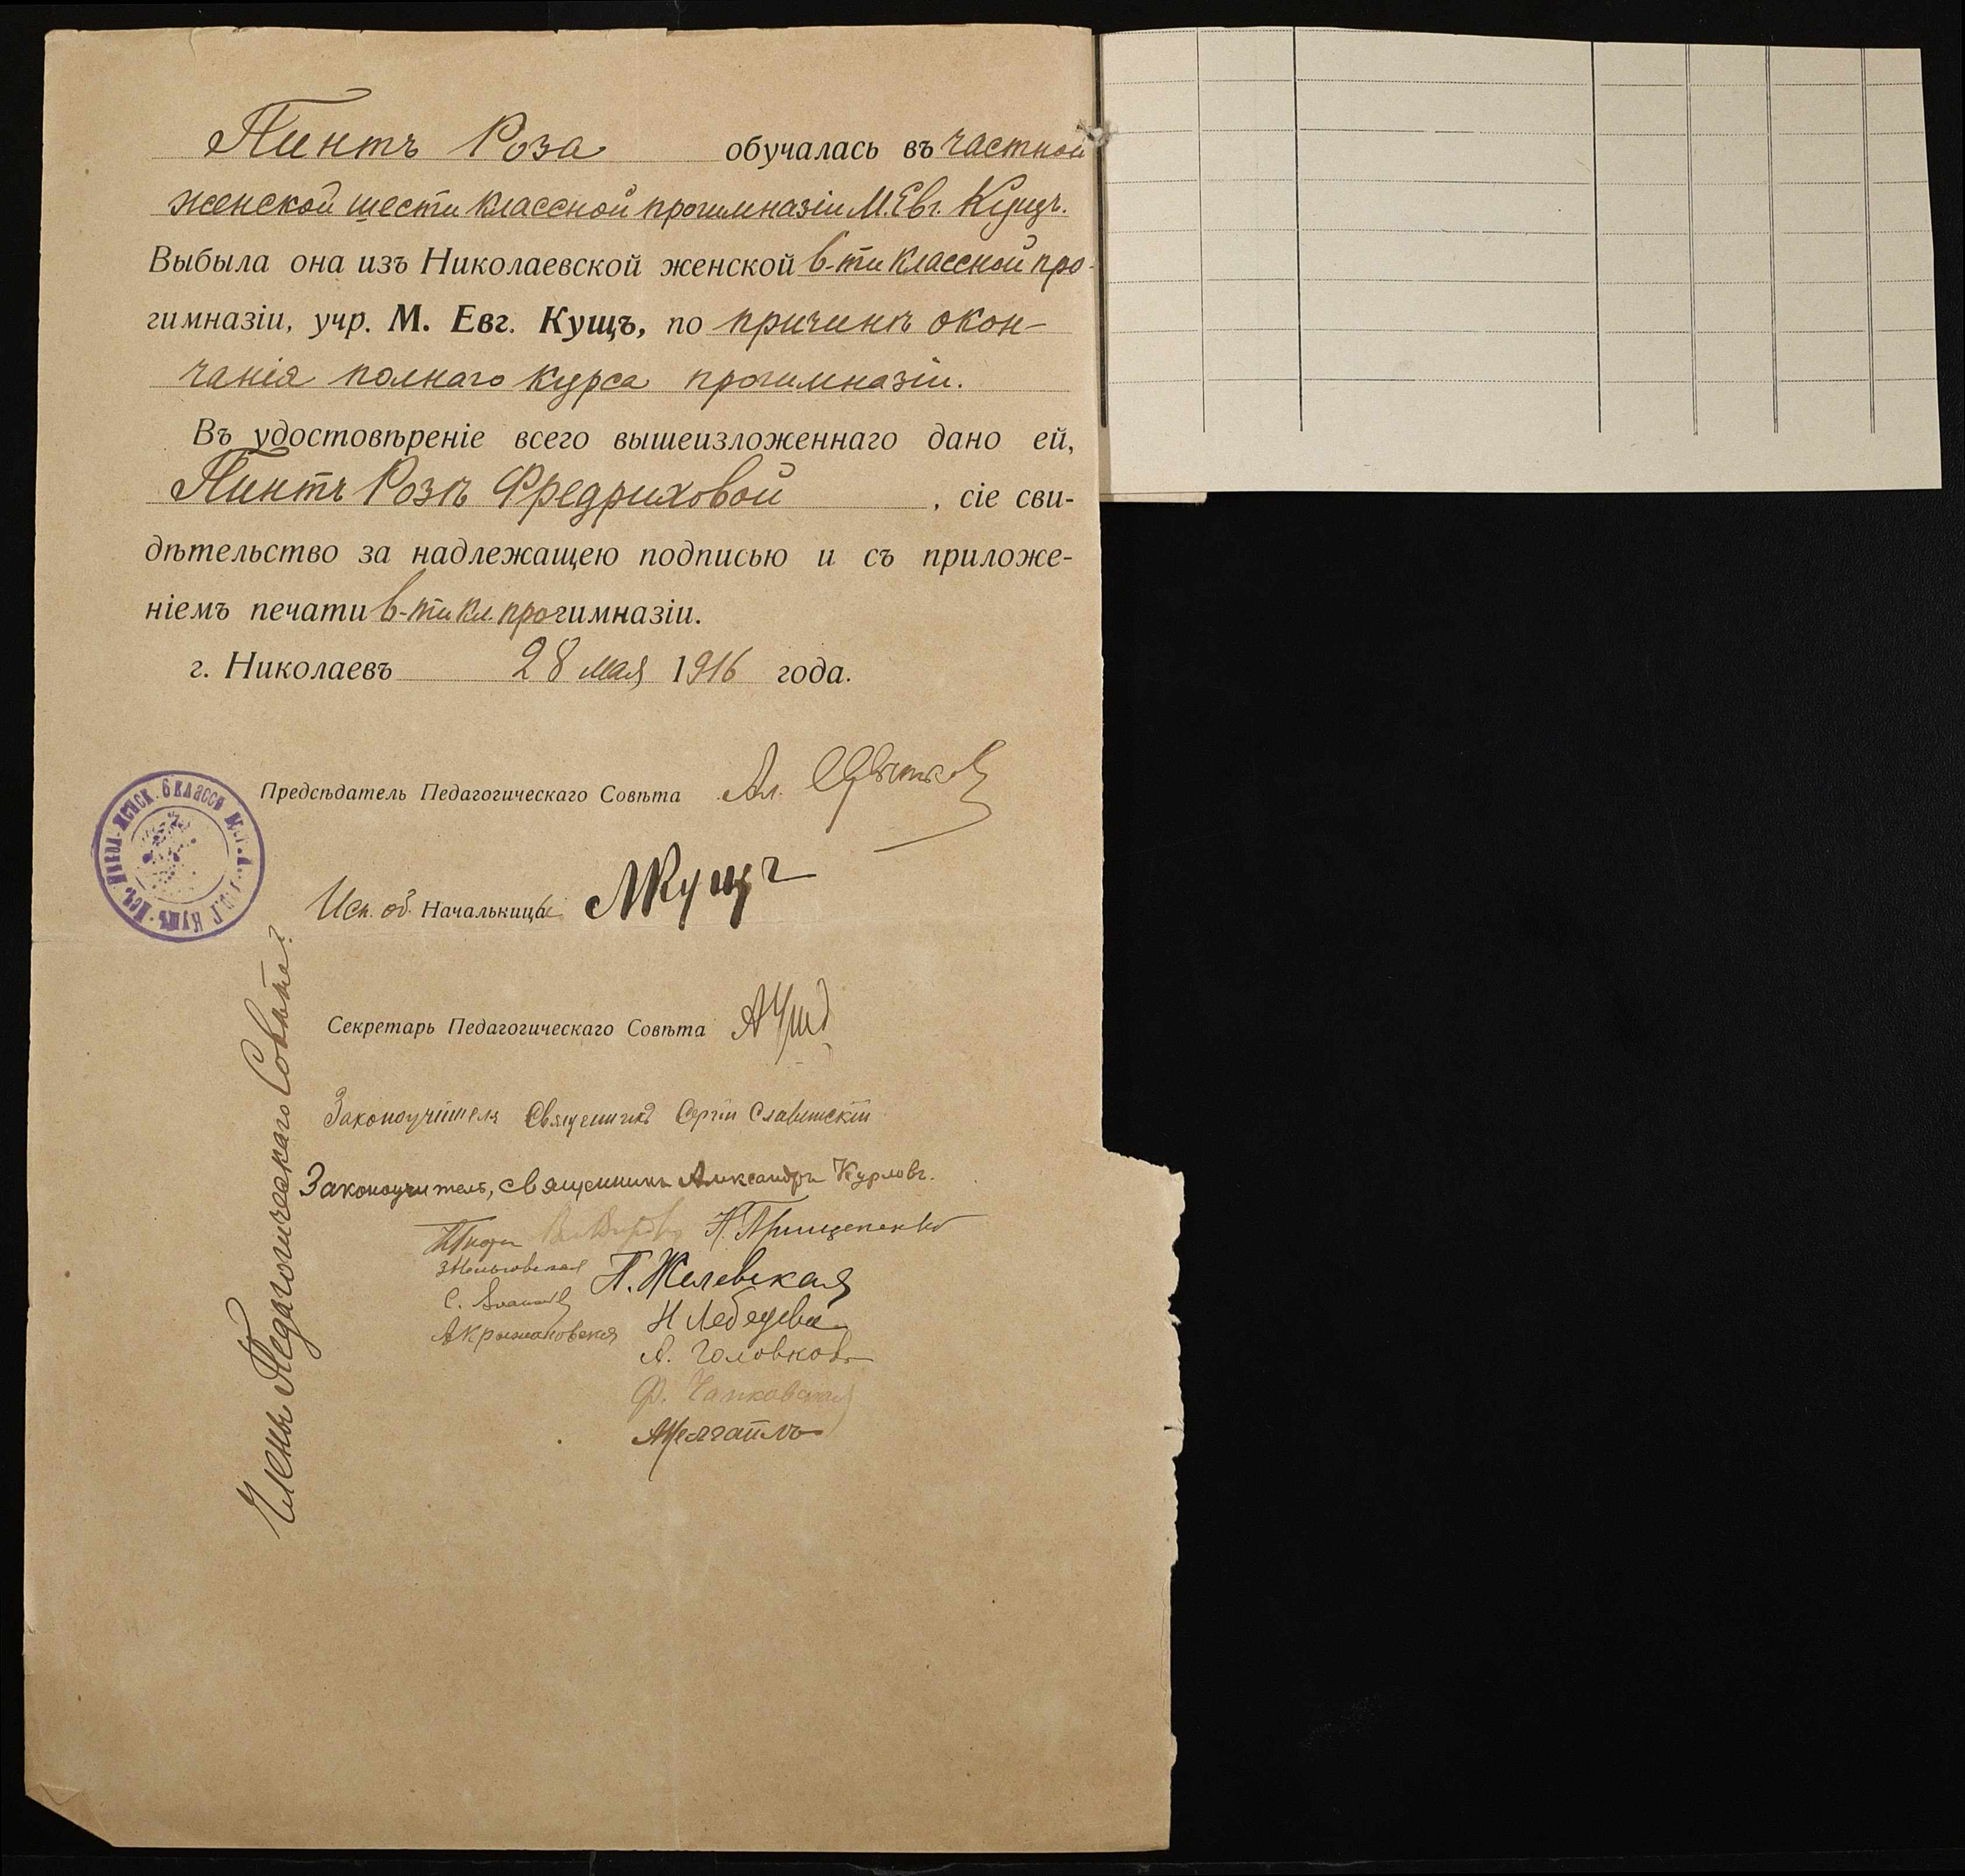 Пинтъ Роза обучалась въ частной
женской шести классной прогимназіи М. Евг. Кущъ.
Выбыла она изъ Николаевской женской 6-ти классной про-
гимназіи, учр. М. Евг. Кущъ, по причинѣ окон-
чанія полнаго курса прогимназіи.
Въ удостовѣреніе всего вышеизложеннаго дано ей,
Пинтъ Розѣ Фредриховой, сіе сви-
дѣтельство за надлежащею подписью и съ приложе-
ніемъ печати 6-ти кл. прогимназіи.
г. Николаевъ 28 мая 1916 года.
Предсѣдатель Педагогическаго Совѣта Ал.
Исп. об. Начальницы МКущъ
Секретарь Педагогическаго Совѣта
Законоучителя Священникъ Сергій Славитскій
Законоучитель, священникъ Александръ Курловъ.
Н. Прищепенко
П. Желевская
Н Лебедева
С.
А Крыжановская
А. Головкова
Ф. Чапковская
Члены Педагогическаго Совѣта:
Никол. Женск. 6 класс Кущъ